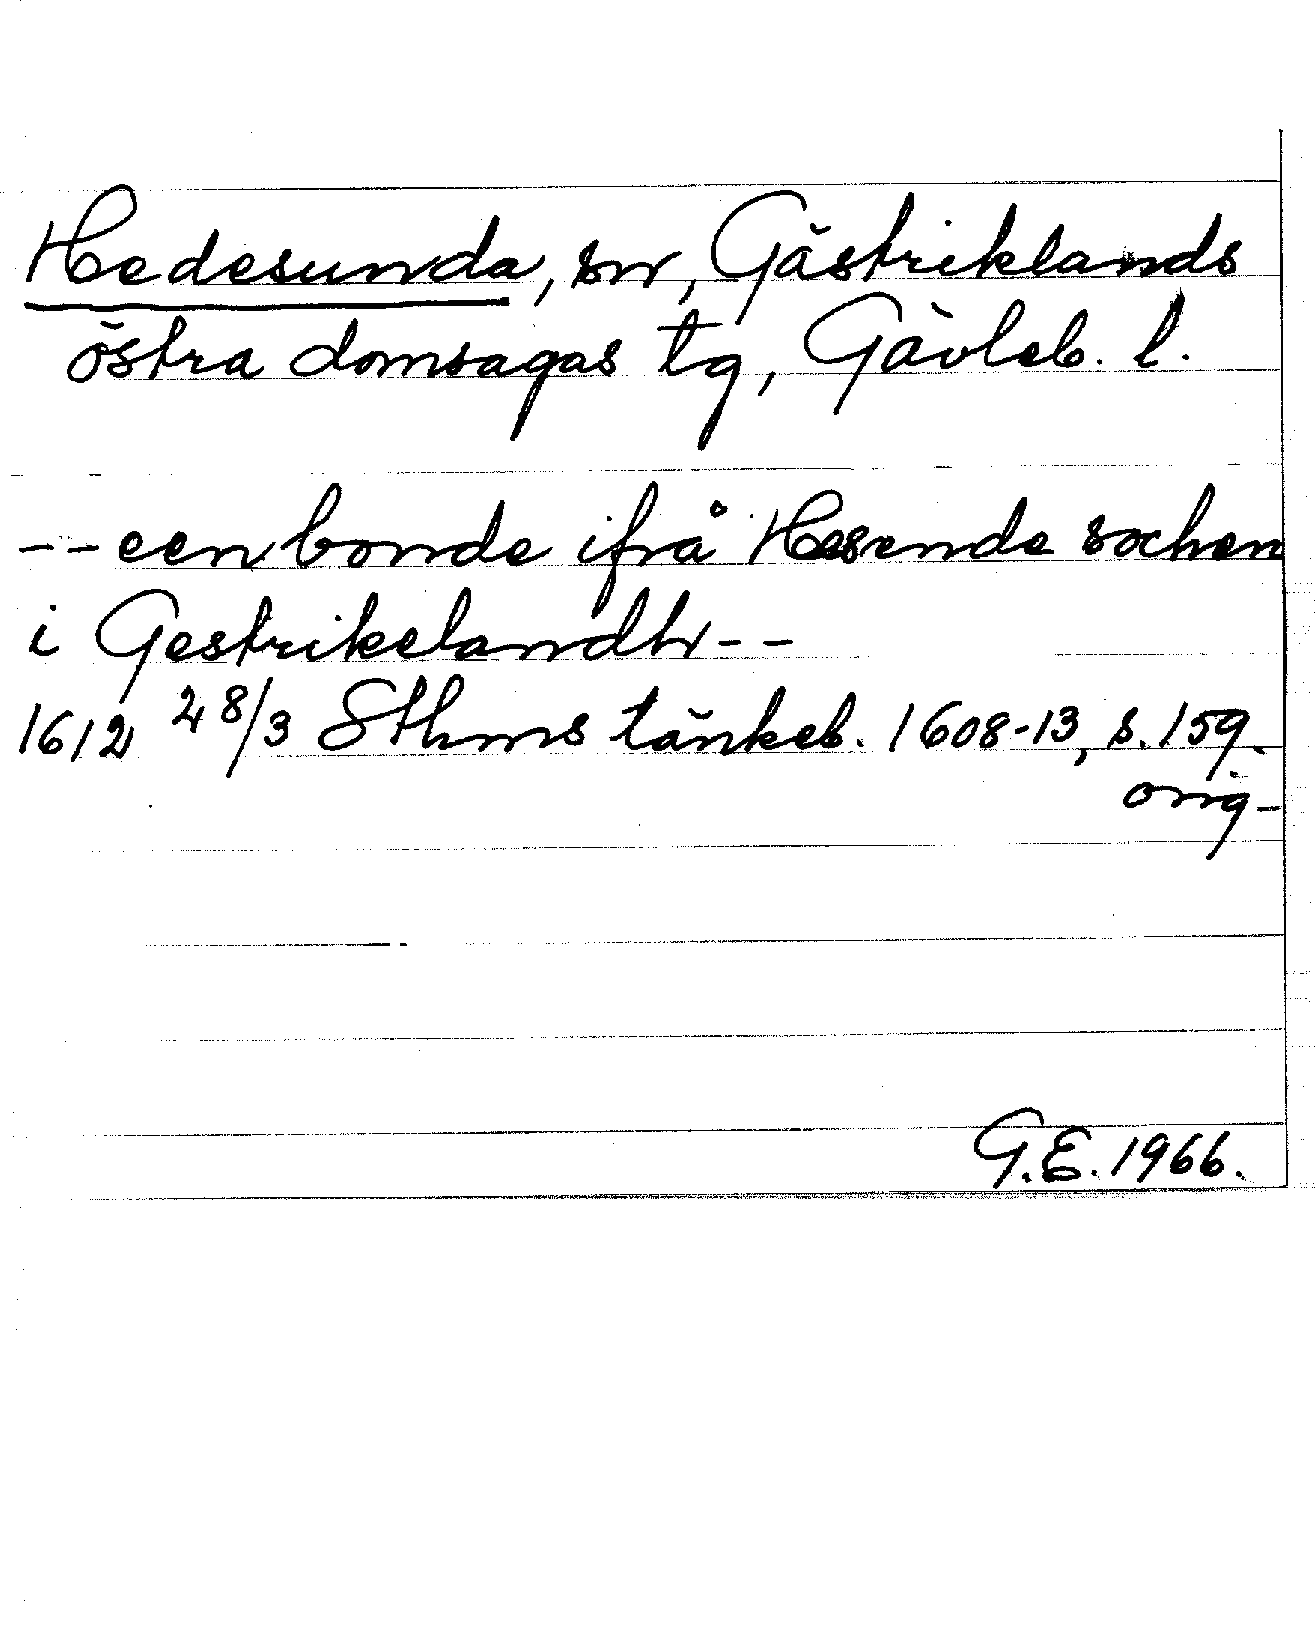 Hedesunda, sn, Gästriklands
östra domsagas tg, Gävleb. l.
-- een bonde ifrå Hesende sochen
i Gestrikelandh --
1612 28/3 Sthms tänkeb. 1608-13, s. 159.
orig-
G.E. 1966.